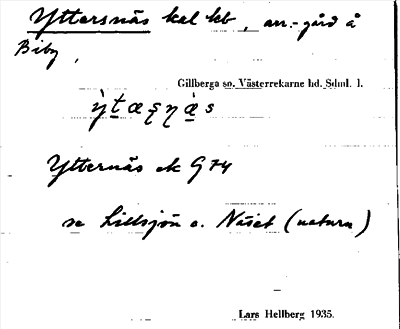 Yttersnäs kal kb, arr.-gård å
Biby,
Gillberga sn. Västerrekarne hd. Sdml. 1.
Ytternäs ek G 74
se Lillsjön o. Näset (naturn)
Lars Hellberg 1935.